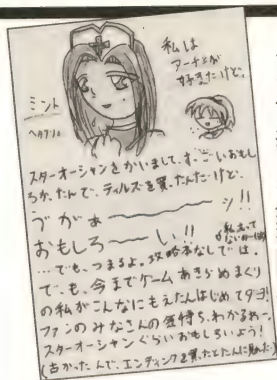 私は
アーチェが
好きだけど。
ミント
ヘタクソ。
スターオーシャンをかいまして、すごーいおもし
ろかったんで、テイルズを買ったんだけど、
うがぁ〜〜ッ!!
おもしろ〜〜い!!
…でも、つまるよ。攻略本なしでは。
でも、今までゲームあきらめまくり
の私がこんなにもえたんはじめてダヨ!
ファンのみなさんの気持ち、わかるわー。
スターオーシャンぐらいおもしろいよう!